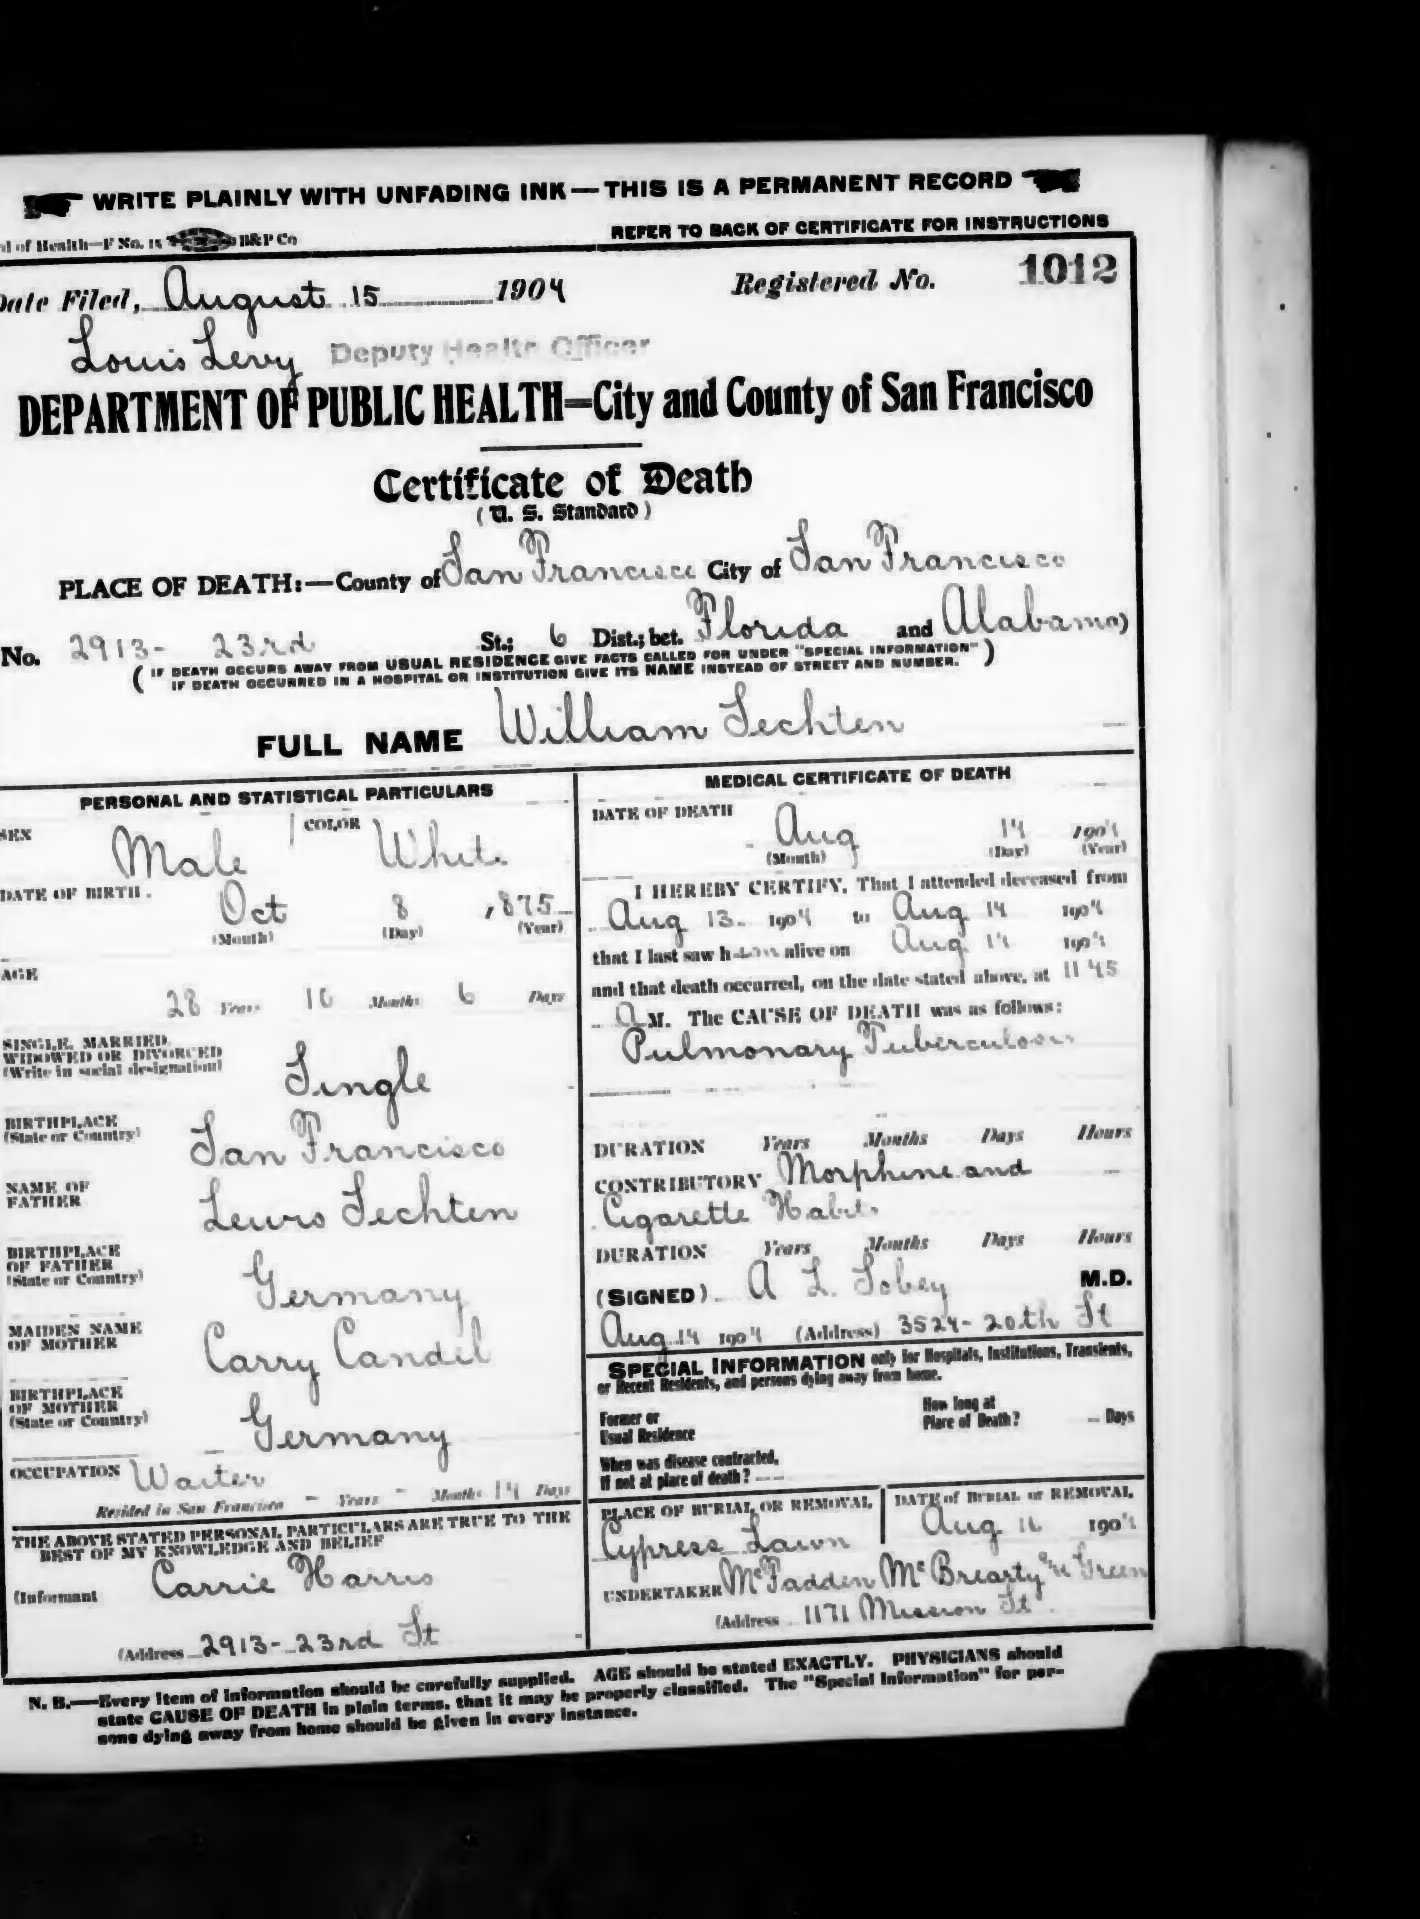 WRITE PLAINLY WITH UNFADING INK — THIS IS A PERMANENT RECORD
of Health—F No. 15 B&P Co
REFER TO BACK OF CERTIFICATE FOR INSTRUCTIONS
Date Filed, August 15 1904 Registered No. 1012
Louis Levy Deputy Health Officer
DEPARTMENT OF PUBLIC HEALTH=City and County of San Francisco
Certificate of Death
(U. S. Standard)
PLACE OF DEATH:—County of San Francisco City of San Francisco
No. 2913- 23rd St.; 6 Dist.; bet. Florida and Alabama)
(IF DEATH OCCURS AWAY FROM USUAL RESIDENCE GIVE FACTS CALLED FOR UNDER "SPECIAL INFORMATION"
IF DEATH OCCURRED IN A HOSPITAL OR INSTITUTION GIVE ITS NAME INSTEAD OF STREET AND NUMBER.)
FULL NAME William Sechten
PERSONAL AND STATISTICAL PARTICULARS
SEX Male COLOR White
DATE OF BIRTH. Oct 8 , 875
(Month) (Day) (Year)
AGE
28 Years 10 Months 6 Days
SINGLE, MARRIED,
WIDOWED OR DIVORCED
(Write in social designation) Single
BIRTHPLACE
(State or Country) San Francisco
NAME OF
FATHER Lewis Sechten
BIRTHPLACE
OF FATHER
(State or Country) Germany
MAIDEN NAME
OF MOTHER Carry Candel
BIRTHPLACE
OF MOTHER
(State or Country) Germany
OCCUPATION Waiter
Resided in San Francisco - Years - Months 14 Days
THE ABOVE STATED PERSONAL PARTICULARS ARE TRUE TO THE
BEST OF MY KNOWLEDGE AND BELIEF
(Informant Carrie Harris
(Address 2913- 23rd St
MEDICAL CERTIFICATE OF DEATH
DATE OF DEATH
Aug 14 1904
(Month) (Day) (Year)
I HEREBY CERTIFY, That I attended deceased from
Aug 13. 1904 to Aug 14 1904
that I last saw him alive on Aug 14 1904
and that death occurred, on the date stated above, at 11 45
A M. The CAUSE OF DEATH was as follows:
Pulmonary Tuberculosis
DURATION Years Months Days Hours
CONTRIBUTORY Morphine and
Cigarette Habits
DURATION Years Months Days Hours
(SIGNED) A L. Sobey M.D.
Aug 14 1904 (Address) 3524- 20th St
SPECIAL INFORMATION only for Hospitals, Institutions, Transients,
or Recent Residents, and persons dying away from home.
Former or
Usual Residence
How long at
Place of Death? Days
When was disease contracted,
If not at place of death?
PLACE OF BURIAL OR REMOVAL
Cypress Lawn
DATE of BURIAL or REMOVAL
Aug 16 1904
UNDERTAKER McFadden McBrearty & Green
(Address 1171 Mission St
N. B.—Every item of information should be carefully supplied. AGE should be stated EXACTLY. PHYSICIANS should
state CAUSE OF DEATH in plain terms, that it may be properly classified. The "Special Information" for per-
sons dying away from home should be given in every instance.